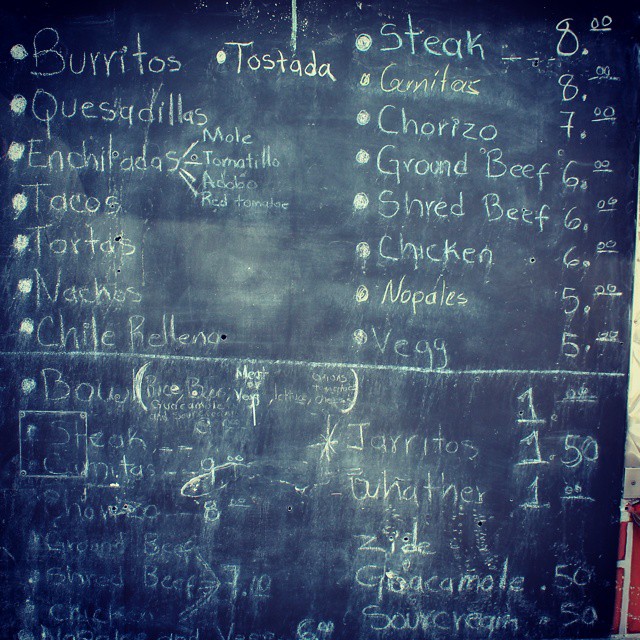 Burritos
Tostada
Quesadillas
Enchiladas
Mole
Tomatillo
Adobo
Red tomatoe
Tacos
Tortas
Nachos
Chile Relleno
Steak 8.00
Carnitas 8.00
Chorizo 7.00
Ground Beef 6.00
Shred Beef 6.00
Chicken 6.00
Nopales 5.00
Vegg 5.00
Bowl (Rice
Meat
Guacamole
Steak -- 9
Carnitas -- 9
Chorizo -- 8
Ground Beef
Shred Beef 7.00
Chicken
Vegg 6.00
1.00
Jarritos 1.50
Whather 1.00
Side
Guacamole .50
Sourcream .50